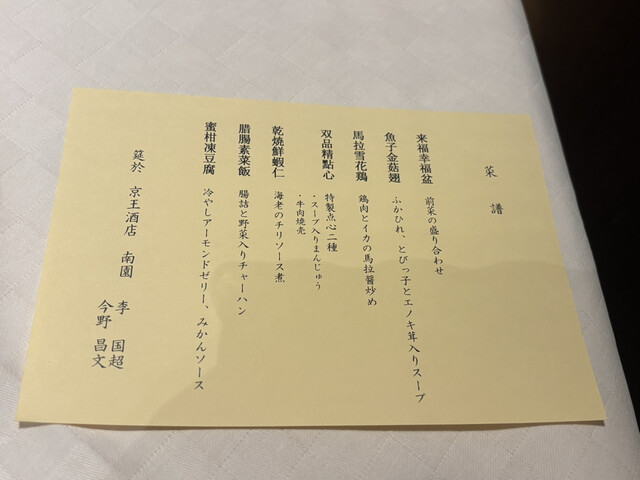 菜譜
来福幸福盆 前菜の盛り合わせ
魚子金菇翅 ふかひれ、とびっ子とエノキ茸入りスープ
馬拉雪花鶏 鶏肉とイカの馬拉醤炒め
双品精點心 特製点心二種
・スープ入りまんじゅう
・牛肉焼売
乾燒鮮蝦仁 海老のチリソース煮
腊腸素菜飯 腸詰と野菜入りチャーハン
蜜柑凍豆腐 冷やしアーモンドゼリー、みかんソース
筵於 京王酒店 南園 李 国超
今野 昌文